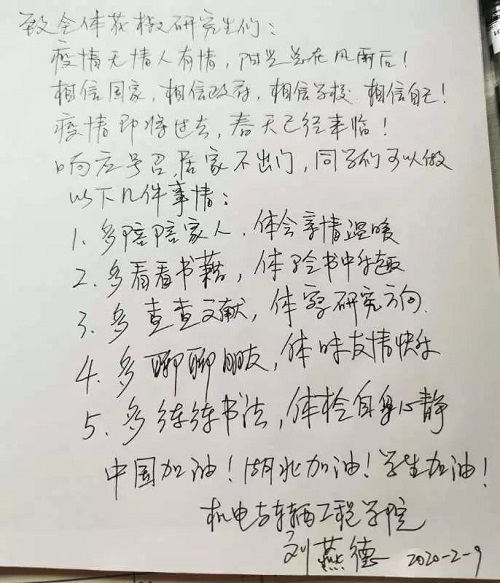 致全体花椒研究生们：
疫情无情人有情，阳光总在风雨后！
相信国家，相信政府，相信学校 相信自己！
疫情即将过去，春天已经来临！
响应号召，居家不出门，同学们可以做
以下几件事情：
1、多陪陪家人．体会亲情温暖
2、多看看书籍，体验书中乐趣
3、多查查文献，体察研究方向
4、多聊聊朋友，体味友情快乐
5、多练练书法，体检自身心静
中国加油！湖北加油！学生加油！
机电与车辆工程学院
刘燕德 2020-2-9